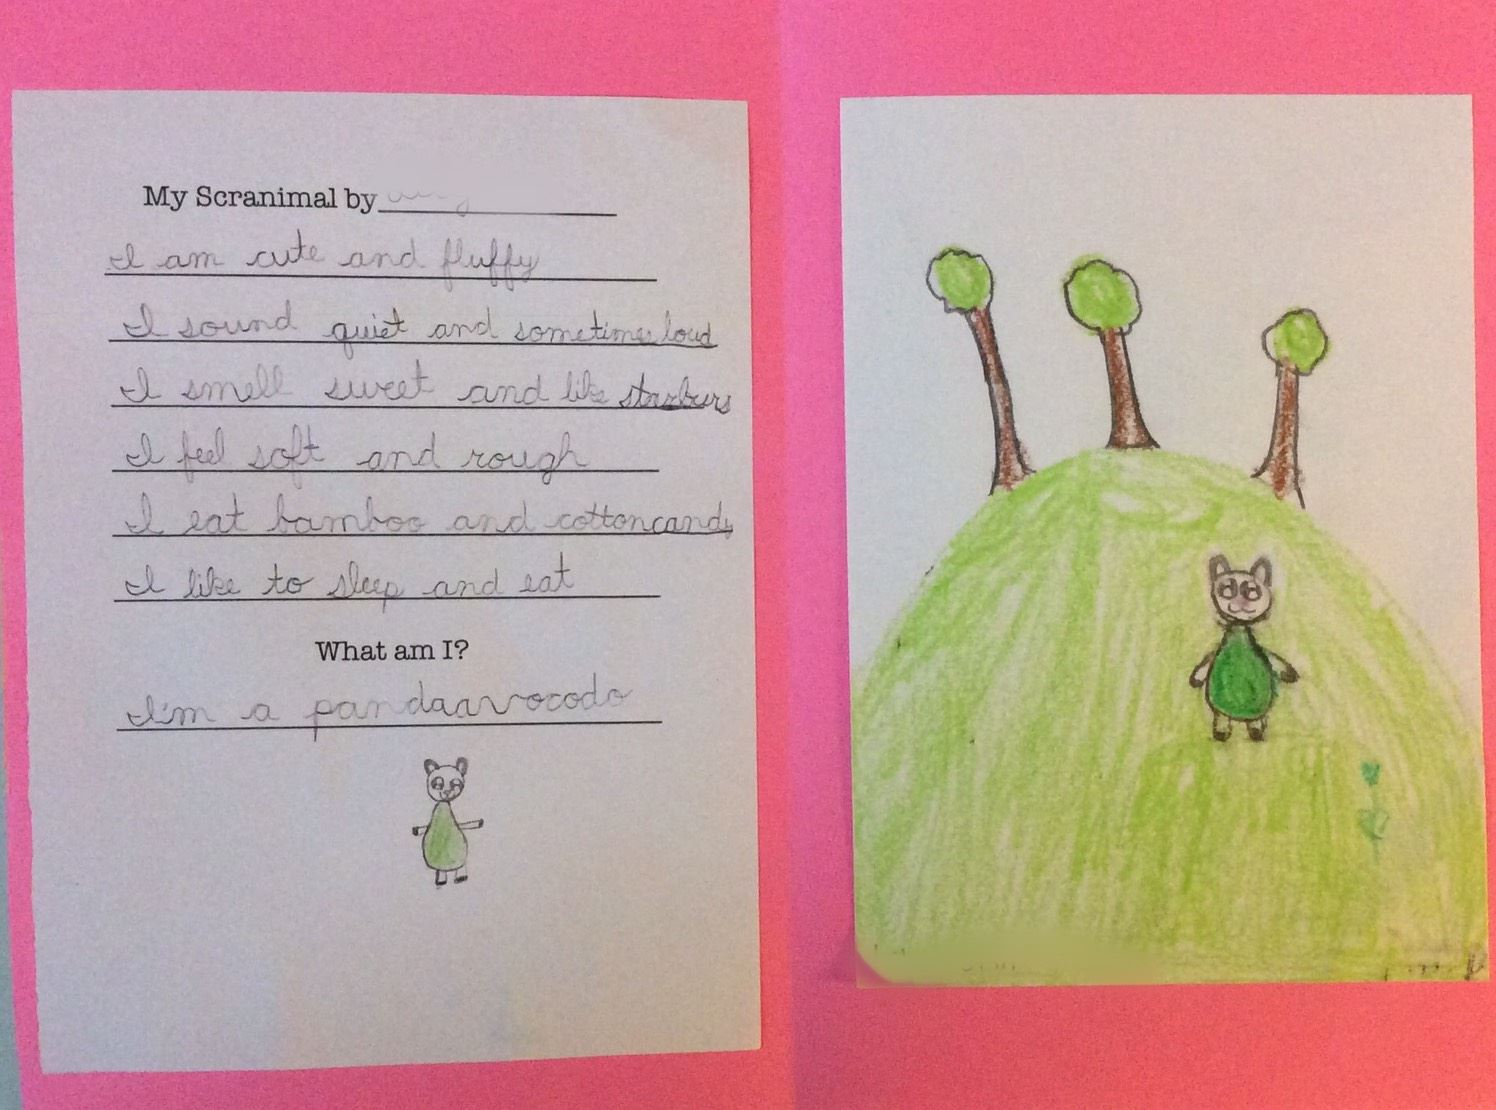 My Scranimal by
I am cute and fluffy
I sound quiet and sometimes loud
I smell sweet and like starburs
I feel soft and rough
I eat bamboo and cottoncandy
I like to sleep and eat
What am I?
I'm a pandaavocodo